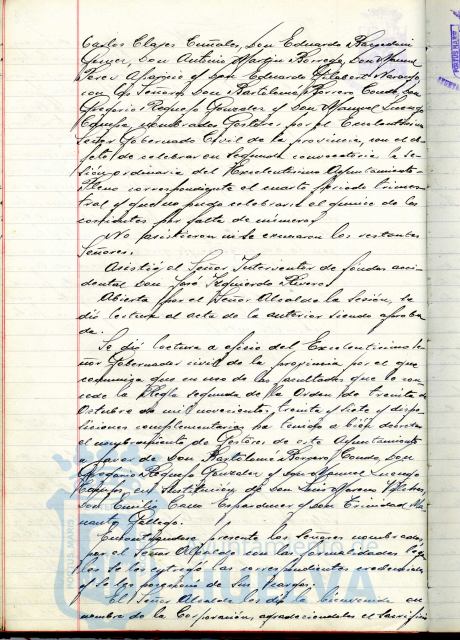 Carlos Clajes Cuñales, Don Eduardo
Don Antonio Martín Borrego, Don Manuel
Aparicio y Don Eduardo Gilabert Naranjo
con los Señores Don Bartolomé Borrero Conde, Don
Gregorio Requejo Gonzalez y Don Manuel
nombrados Gestores por el Excelentísimo
Señor Gobernador Civil de la provincia, con el ob-
jeto de celebrar en segunda convocatoria la se-
sión ordinaria del Excelentísimo Ayuntamiento
Pleno correspondiente el cuarto período trimes-
tral y que no pudo celebrarse el quince de los
corrientes por falta de número.
No asistieron ni se excusaron los restantes
Señores.
Asistió el Señor Interventor de fondos acci-
dental Don José Izquierdo Rivero.
Abierta por el Señor Alcalde la sesión, se
dió lectura al acta de la anterior siendo aproba-
da.
Se dió lectura a oficio del Excelentísimo Se-
ñor Gobernador civil de la provincia por el que
comunica que en uso de las facultades que le con-
cede la Regla segunda de la Orden de treinta de
Octubre de mil novecientos treinta y siete y dispo-
siciones complementarias ha tenido a bien decretar
el nombramiento de Gestores de este Ayuntamiento
a favor de Don Bartolomé Borrero Conde, Don
Gregorio Requejo Gonzalez y Don Manuel
en sustitución de Don Luis Moreno
Don Emilio Cano y Don Trinidad
Gallego.
Encontrándose presente los Señores nombrados,
por el Señor Alcalde con las formalidades lega-
les se les entregó las correspondientes credenciales
y se les posesionó de sus cargos.
El Señor Alcalde les dió la bienvenida en
nombre de la Corporación, agradeciendoles el sacrificio
Ayuntamiento de
HUELVA